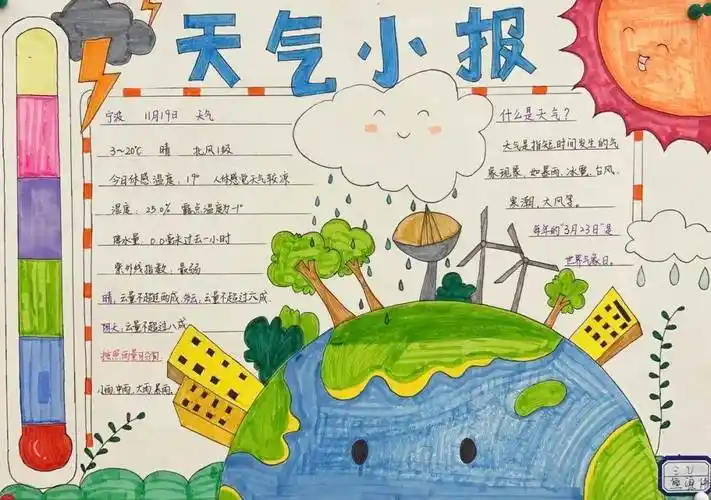 天气小报
宁波 11月19日 天气
3~20℃ 晴 北风1级
今日体感温度：19° 人体感觉天气较凉
湿度：25.0% 露点温度为-1°
降水量：0.0毫米过去一小时
紫外线指数：最弱
晴，云量不超过两成，多云，云量不超过八成
阴天，云量不超过八成
按照雨量可分阴
小雨，中雨，大雨，暴雨
什么是天气？
天气是指短时间发生的气
象现象，如暴雨、冰雹、台风、
寒潮、大风等。
每年的"3月23日"是
世界气象日。